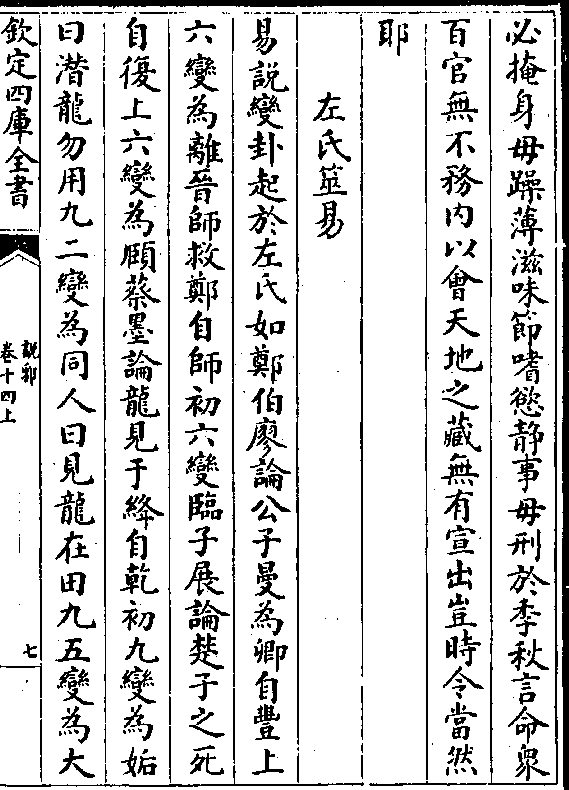 必掩身毋躁薄滋味節嗜慾靜事毋刑於季秋言命衆
百官無不務内以會天地之藏無有宣出豈時令當然
耶
左氏筮易
易說變卦起於左氏如鄭伯廖論公子曼為卿自豐上
六變為離晉師救鄭自師初六變臨子展論楚子之死
自復上六變為頤蔡墨論龍見于絳自乾初九變為姤
曰潛龍勿用九二變為同人曰見龍在田九五變為大
欽定四庫全書
說郛
卷十四上
七